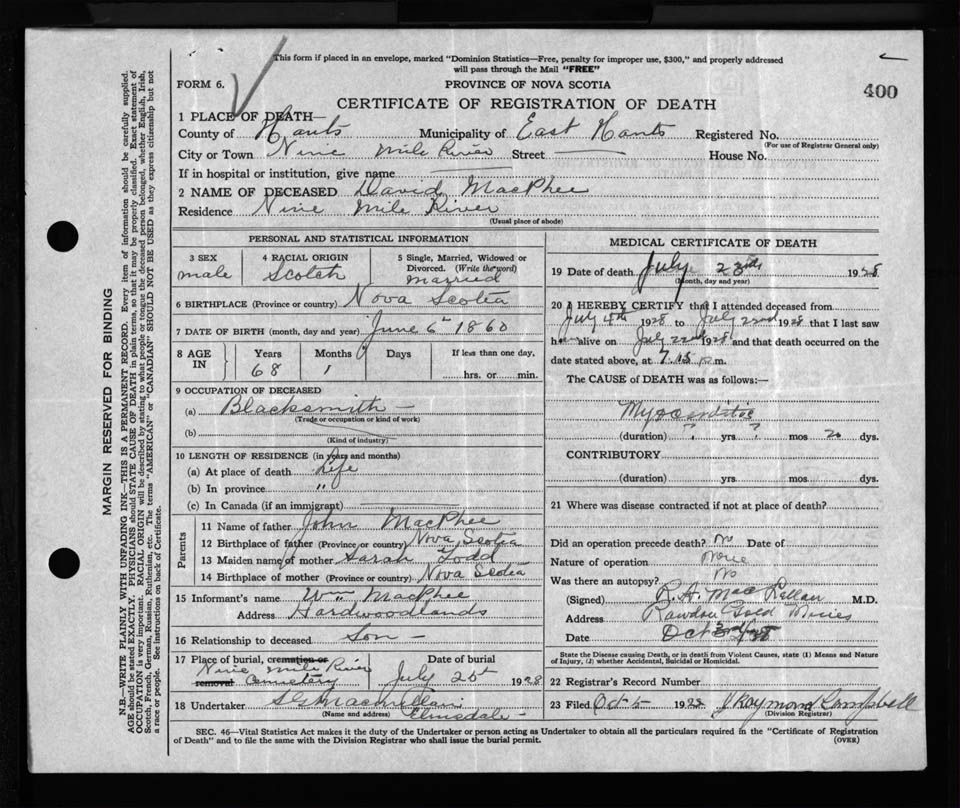 This form if placed in an envelope, marked "Dominion Statistics—Free, penalty for improper use, $300," and properly addressed
will pass through the Mail "FREE"
FORM 6.
PROVINCE OF NOVA SCOTIA
400
CERTIFICATE OF REGISTRATION OF DEATH
1 PLACE OF DEATH—
County of Hants Municipality of East Hants Registered No.
(For use of Registrar General only)
City or Town Nine Mile River Street House No.
If in hospital or institution, give name
2 NAME OF DECEASED David MacPhee
Residence Nine Mile River
(Usual place of abode)
MARGIN RESERVED FOR BINDING
N.B.—WRITE PLAINLY WITH UNFADING INK—THIS IS A PERMANENT RECORD. Every item of information should be carefully supplied.
AGE should be stated EXACTLY. PHYSICIANS should STATE CAUSE OF DEATH in plain terms, so that it may be properly classified. Exact statement of
OCCUPATION is very important. RACIAL ORIGIN will be described by stating to what people or tongue the deceased person belonged, whether English, Irish,
Scotch, French, German, Russian, Ruthenian, etc. The terms "AMERICAN" or "CANADIAN" SHOULD NOT BE USED as they express citizenship but not
a race or people. See instructions on back of Certificate.
PERSONAL AND STATISTICAL INFORMATION
3 SEX
male
4 RACIAL ORIGIN
Scotch
5 Single, Married, Widowed or
Divorced. (Write the word)
married
6 BIRTHPLACE (Province or country) Nova Scotia
7 DATE OF BIRTH (month, day and year) June 6th 1860
8 AGE IN
Years
68
Months
1
Days
If less than one day,
hrs. or min.
9 OCCUPATION OF DECEASED
(a) Blacksmith —
(Trade or occupation or kind of work)
(b)
(Kind of industry)
10 LENGTH OF RESIDENCE (in years and months)
(a) At place of death Life
(b) In province "
(c) In Canada (if an immigrant)
Parents
11 Name of father John MacPhee
12 Birthplace of father (Province or country) Nova Scotia
13 Maiden name of mother Sarah Todd
14 Birthplace of mother (Province or country) Nova Scotia
15 Informant's name Wm MacPhee
Address Hardwoodlands
16 Relationship to deceased Son —
17 Place of burial, cremation or removal
Nine Mile River
Cemetery
Date of burial
July 25th 1928
18 Undertaker
(Name and address) Elmsdale —
MEDICAL CERTIFICATE OF DEATH
19 Date of death July 23rd 1928
(Month, day and year)
20 I HEREBY CERTIFY that I attended deceased from
July 4th 1928 to July 22nd 1928 that I last saw
him alive on July 22nd 1928 and that death occurred on the
date stated above, at 7.15 m.
The CAUSE of DEATH was as follows:—
Myocarditis
(duration) ? yrs ? mos dys.
CONTRIBUTORY
(duration) yrs. mos. dys.
21 Where was disease contracted if not at place of death?
Did an operation precede death? No Date of
Nature of operation None
Was there an autopsy? No
(Signed) R. A. MacLellan M.D.
Address Rawdon Gold Mines
Date Oct 3rd/28
State the Disease causing Death, or in death from Violent Causes, state (1) Means and Nature
of Injury, (2) whether Accidental, Suicidal or Homicidal.
22 Registrar's Record Number
23 Filed Oct 5 1928 J Raymond Campbell
(Division Registrar)
SEC. 46—Vital Statistics Act makes it the duty of the Undertaker or person acting as Undertaker to obtain all the particulars required in the "Certificate of Registration
of Death" and to file the same with the Division Registrar who shall issue the burial permit.
(OVER)